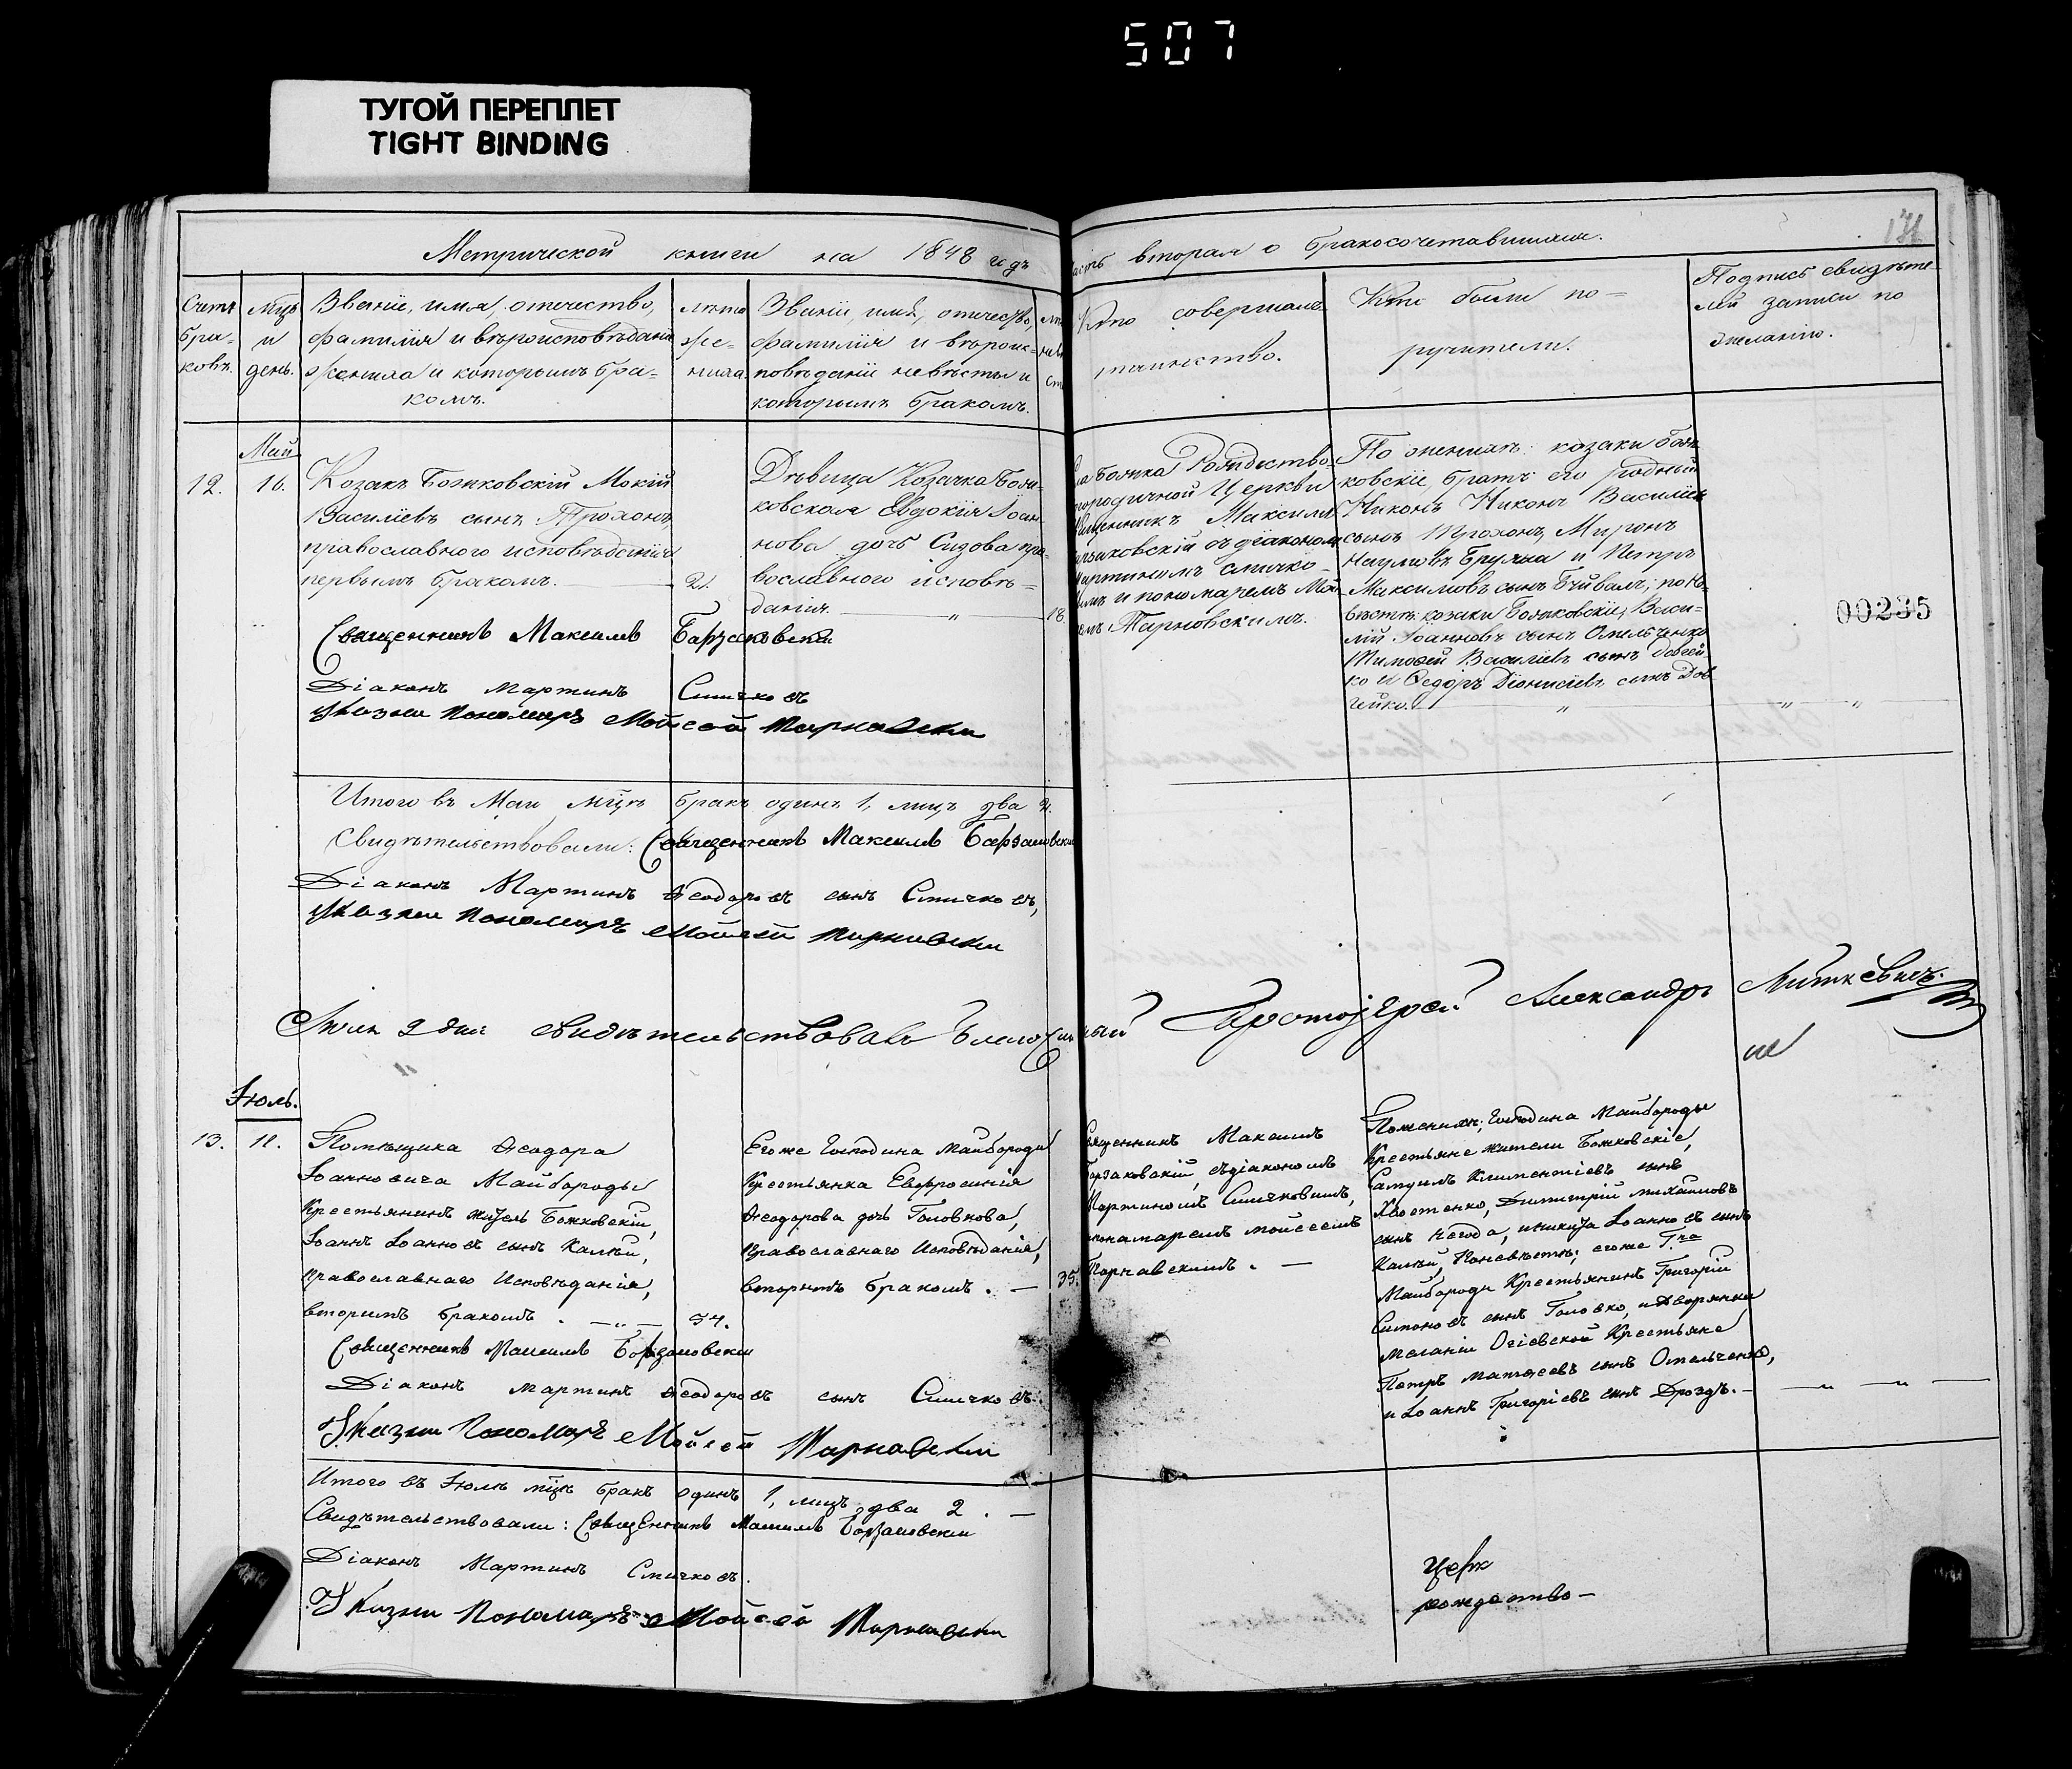 507
ТУГОЙ ПЕРЕПЛЕТ
TIGHT BINDING
Метрической книги на 1848 годъ
часть вторая о бракосочетавшихся.
Счетъ бра-ковъ.
Мцъ и день.
Званіе, имя, отечество,
фамилія и вѣроисповѣданіе
жениха и которымъ бра-
комъ.
лѣта
же-
ниха.
Званіе, имя, отечество,
фамилія и вѣроис-
повѣданіе невѣсты и
которымъ бракомъ.
Кто совершалъ
таинство.
Кто были по-
ручители.
Подпись свидѣте-
лей записи по
желанію.
Май
12. 16.
Козакъ Божковскій Мокій
Василіевъ сынъ Прохонъ,
православного исповѣданія
первымъ бракомъ. 21.
Дѣвица Козачка Бож-
ковская Евдокія Іоан-
нова дочь Сизова пра-
вославного исповѣ-
данія. — „ — 18.
Божка Рождество
городичной Церкви
Священникъ Максимъ
съ діакономъ
Мартиномъ Смичко-
и пономаремъ Мои-
Тарновскимъ.
По женихѣ: козаки Бож-
ковскіе, братъ его родный
Никонъ Василіевъ
сынъ Прохонъ, Миронъ
Наумовъ и Петръ
Максимовъ сынъ по не-
вѣстѣ: козаки Божковскіе, Васи-
лій Іоанновъ сынъ Омельченко
Тимофей Василіевъ сынъ Довгей-
ко и Федоръ Діонисіевъ сынъ Дов
гейко. — „ —
00235
Священникъ Максимъ Барзаковскій
Діаконъ Мартинъ Смичковъ
Указній Пономарь Мойсей Тарновскій
Итого въ Маи мцѣ бракъ одинъ 1, лицъ два 2.
Свидѣтельствовали: Священникъ Максимъ Барзаковскій
Діаконъ Мартинъ Ѳеодоровъ сынъ Смичковъ,
Указній Пономарь Мойсей Тарновскій
2 дня свидѣтельствовалъ Благочинный Протоіерей Александръ Литкевичъ.
Іюль.
13. 11.
Помѣщика Ѳеодора
Іоанновича Майбороды
Крестьянинъ житель Божковскій,
Іоаннъ Іоанновъ сынъ Калѣй,
православнаго Исповѣданія,
вторимъ бракомъ. — „ — 34.
Егоже Господина Майбороди
Крестьянка Евфросинія
Ѳеодорова дочь Головкова,
православнаго Исповѣданія,
вторимъ бракомъ. — 35.
Священникъ Максимъ
Борзаковскій, съ діакономъ
Мартиномъ Смичковимъ,
пономаремъ Мойсеемъ
Тарнавскимъ. —
По женихѣ; Господина Майбороды
Крестьяне жители Божковскіе,
Климентіевъ сынъ
Хвостенко, Димитрій Михаиловъ
сынъ Негода, и Никита Іоанновъ сынъ
Калѣй, По невѣстѣ; егоже Г.на
Майбороди Крестьянинъ Григорій
Симоновъ сынъ Головко, и Дворянки
Меланіи Огіевской Крестьяне
Петръ Матѳеевъ сынъ Омельченко,
и Іоаннъ Григоріевъ сынъ Дроздъ. —
Священникъ Максимъ Борзаковскій
Діаконъ Мартинъ Ѳеодоровъ сынъ Смичковъ.
Указній Пономарь Мойсей Тарнавскій
Итого въ Іюлѣ мцѣ бракъ одинъ 1, лицъ два 2. —
Свидѣтельствовали: Священникъ Максимъ Борзаковскій
Діаконъ Мартинъ Смичковъ.
Указній Пономарь Мойсей Тарнавскій
церк
рождество —